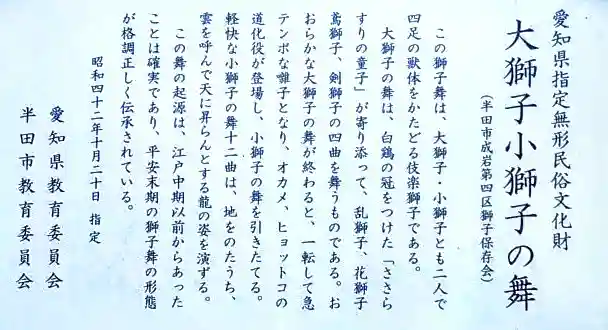 愛知県指定無形民俗文化財
大獅子小獅子の舞
(半田市成岩第四区獅子保存会)
この獅子舞は、大獅子・小獅子とも二人で
四足の獣体をかたどる伎楽獅子である。
大獅子の舞は、白鶏の冠をつけた「ささら
すりの童子」が寄り添って、乱獅子、花獅子
鳶獅子、剣獅子の四曲を舞うものである。お
おらかな大獅子の舞が終わると、一転して急
テンポな囃子となり、オカメ、ヒョットコの
道化役が登場し、小獅子の舞を引きたてる。
軽快な小獅子の舞十二曲は、地をのたうち、
雲を呼んで天に昇らんとする龍の姿を演ずる。
この舞の起源は、江戸中期以前からあった
ことは確実であり、平安末期の獅子舞の形態
が格調正しく伝承されている。
昭和四十二年十月二十日 指定
愛知県教育委員会
半田市教育委員会